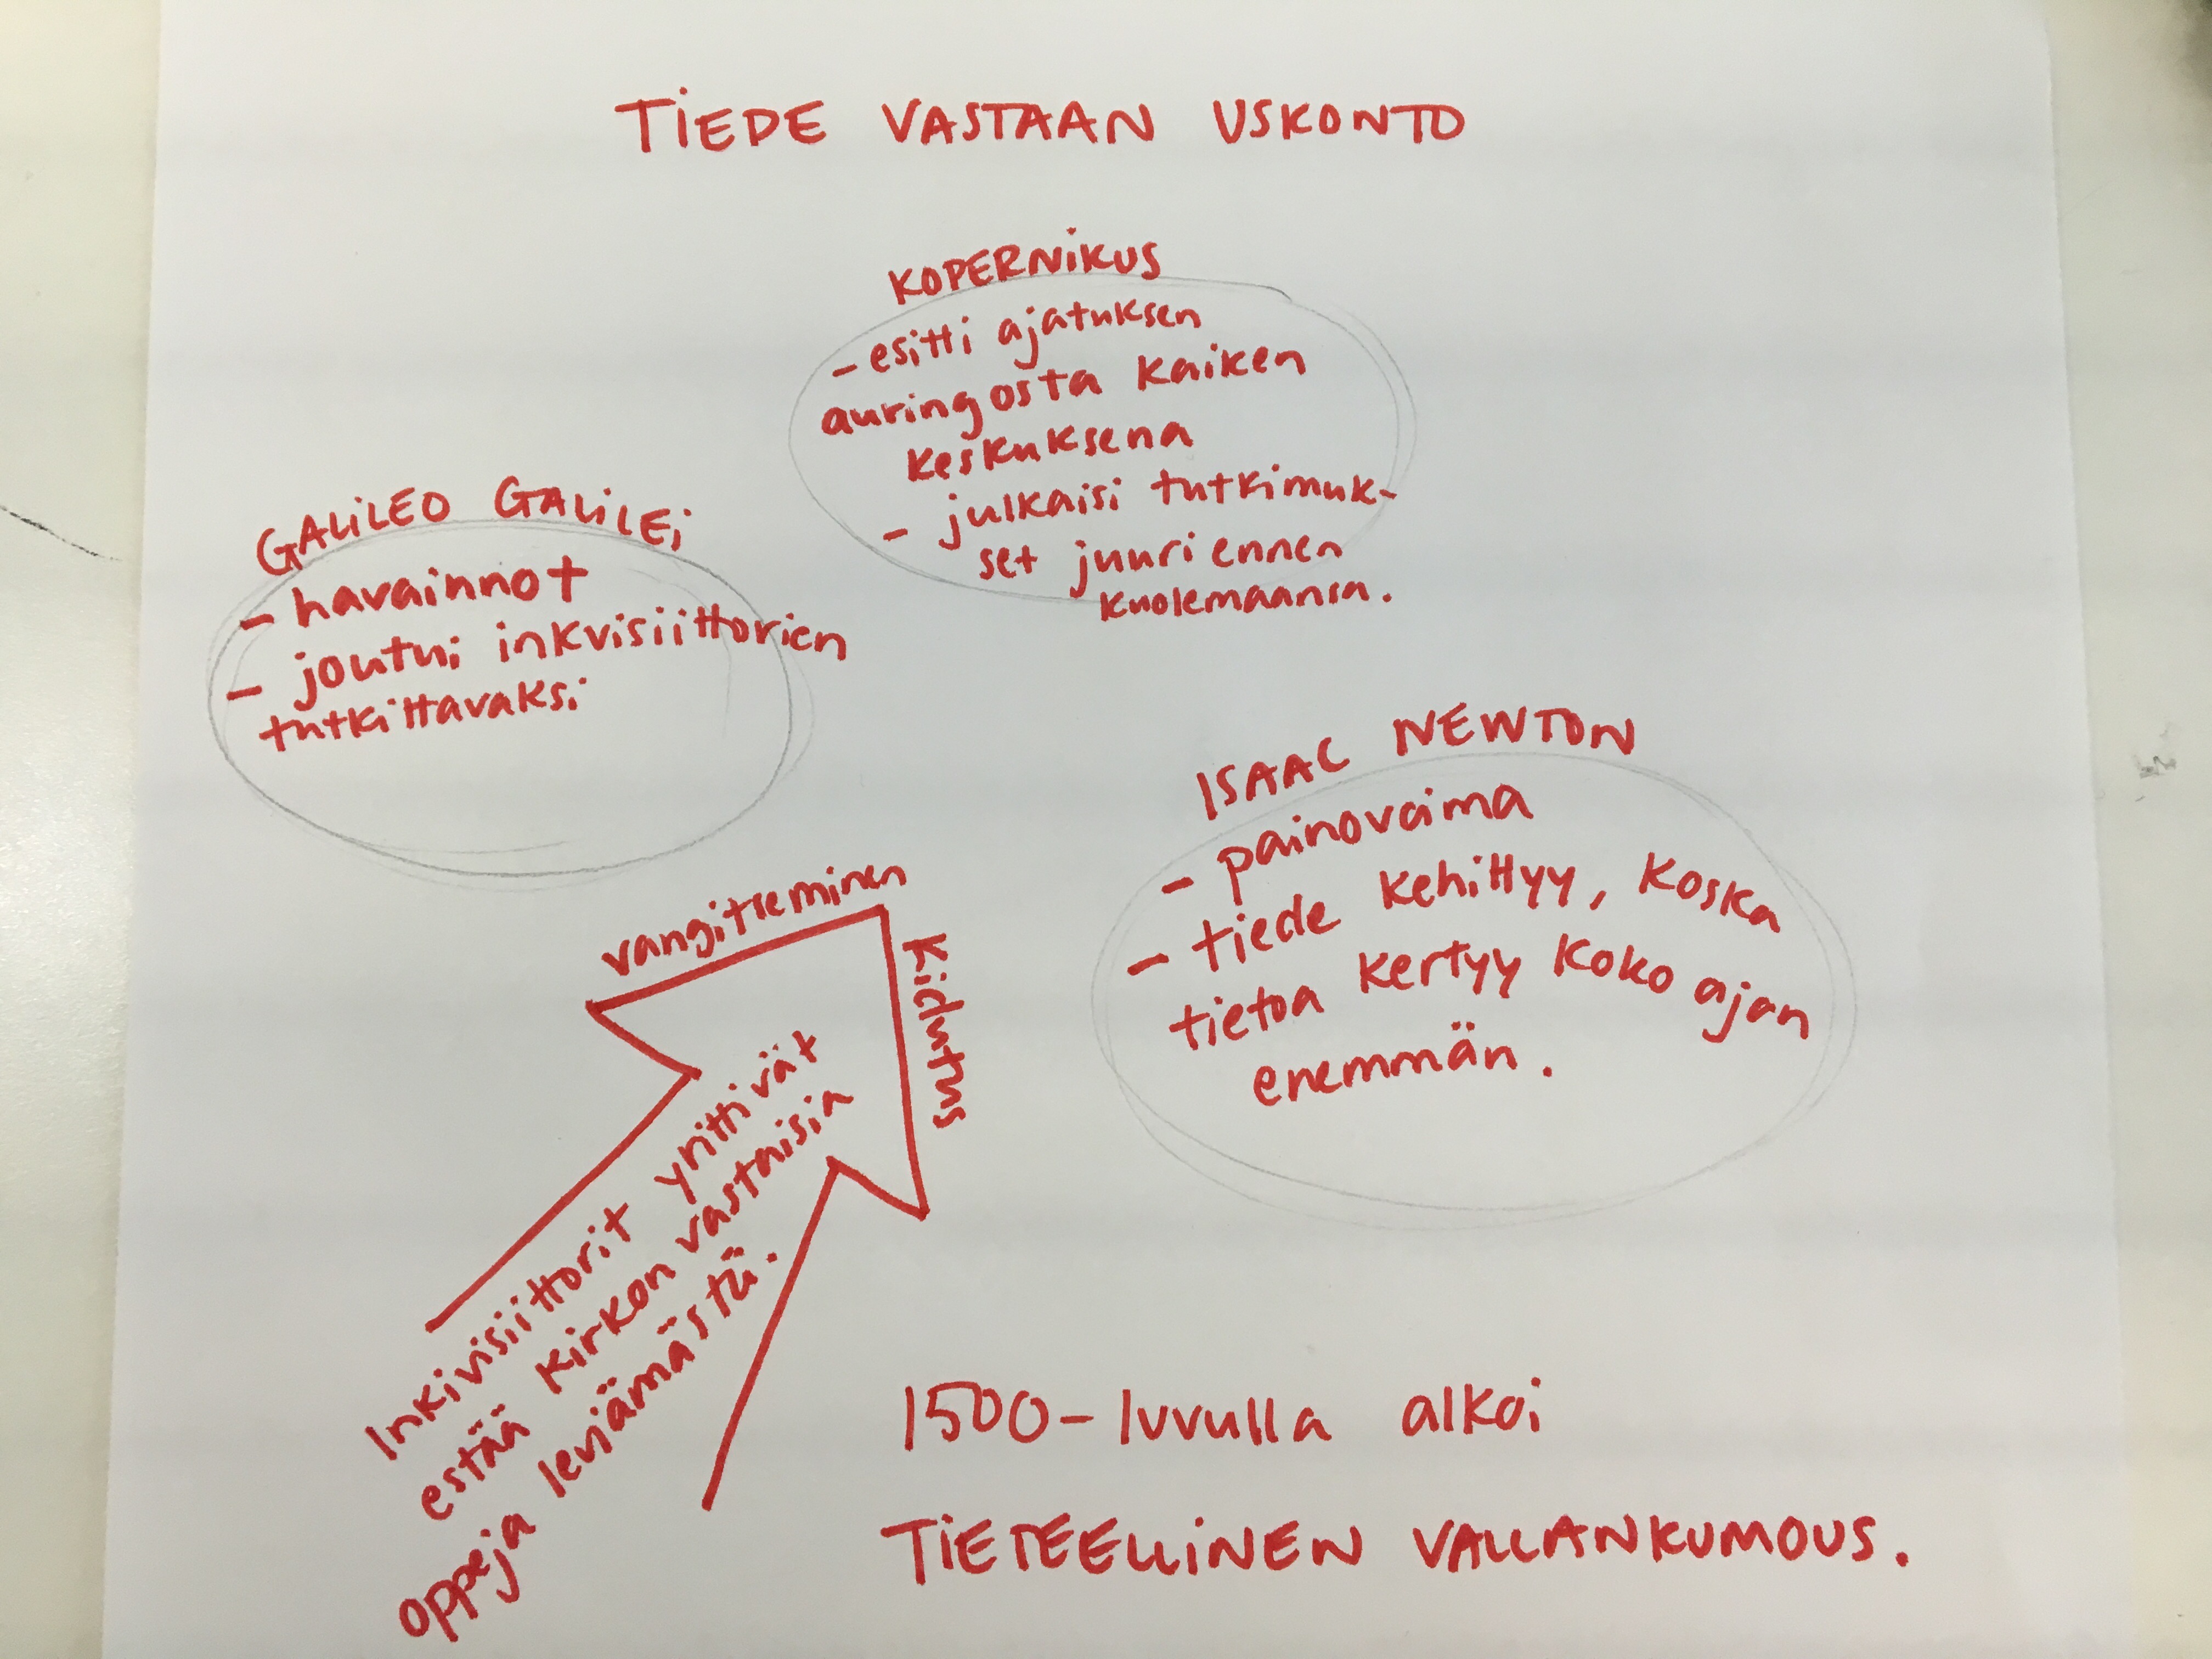 TIEDE VASTAAN USKONTO
KOPERNIKUS
- esitti ajatuksen
auringosta kaiken
keskuksena
- julkaisi tutkimuk-
set juuri ennen
kuolemaansa.
GALILEO GALILEI
- havainnot
- joutui inkvisiittorien
tutkittavaksi
ISAAC NEWTON
- painovoima
- tiede kehittyy, koska
tietoa kertyy koko ajan
enemmän.
vangitseminen
kidutus
Inkivisiittorit yrittivät
estää kirkon vastaisia
oppeja leviämästä.
1500-luvulla alkoi
TIETEELLINEN VALLANKUMOUS.